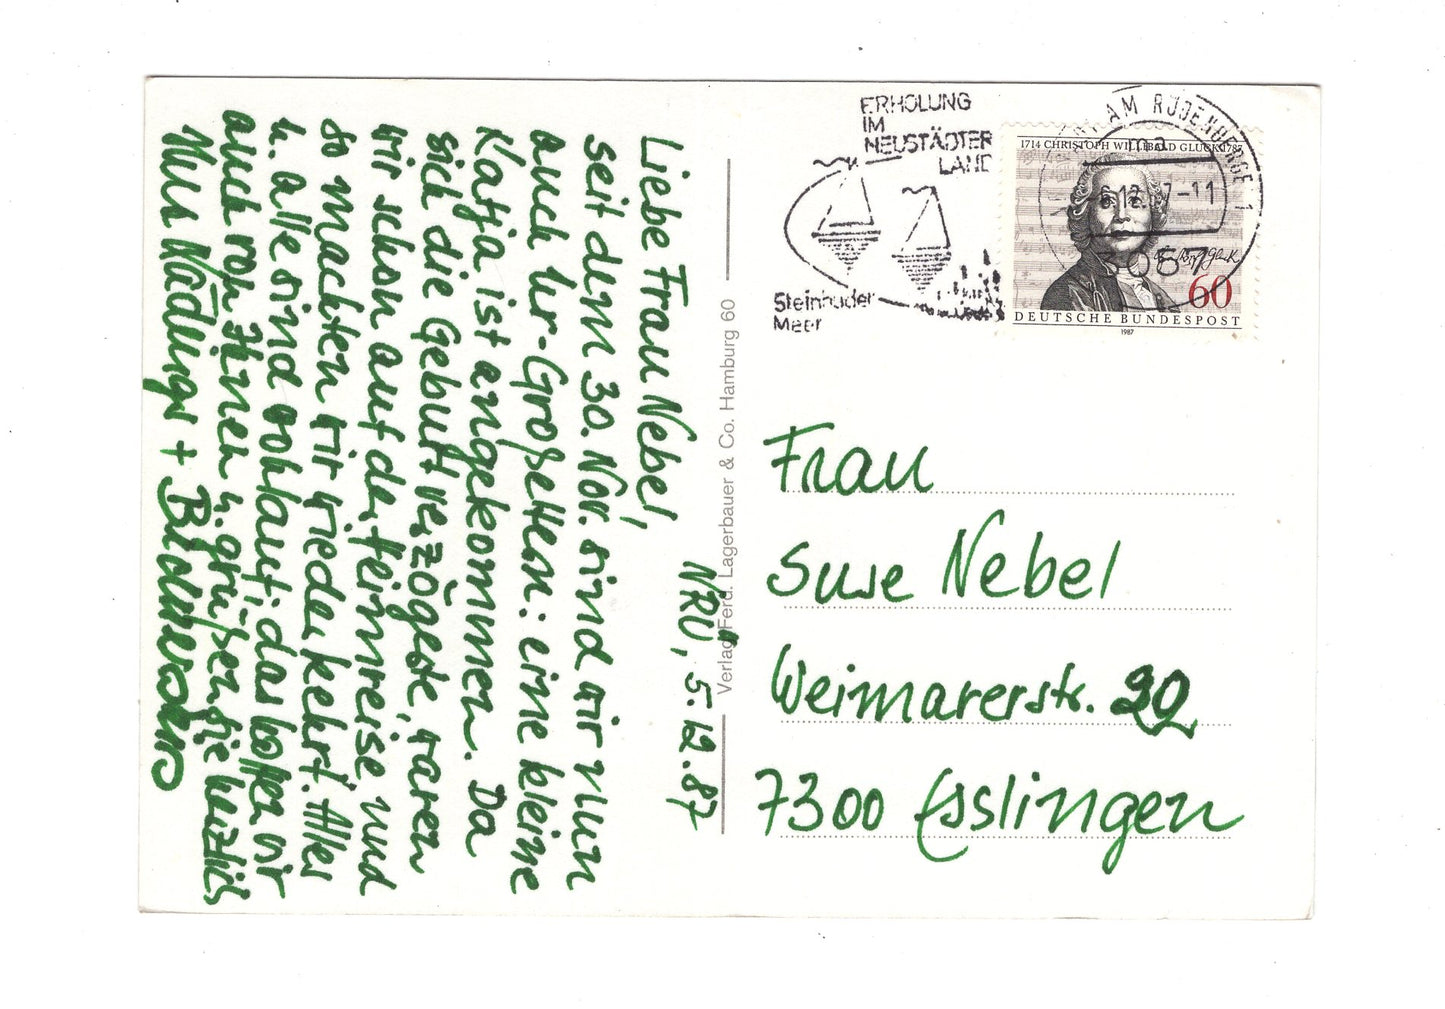 NRÜ, 5.12.87
Liebe Frau Nebel,
seit dem 30. Nov. sind wir nun
auch Ur-Großeltern: eine kleine
Katja ist angekommen. Da
sich die Geburt verzögerte, waren
wir schon auf der Heimreise und
so machten wir wieder kehrt. Alles
u. alle sind wohlauf; das hoffen wir
auch von Ihnen u. grüßen Sie herzlich
Ihre +
Verlag Ferd. Lagerbauer & Co. Hamburg 60
ERHOLUNG
IM
NEUSTÄDTER
LAND
Steinhuder
Meer
AM RÜBENBERGE 1
12.87-11
3057
1714 CHRISTOPH WILLIBALD GLUCK 1787
60
DEUTSCHE BUNDESPOST
1987
Frau
Suse Nebel
Weimarerstr. 20
7300 Esslingen